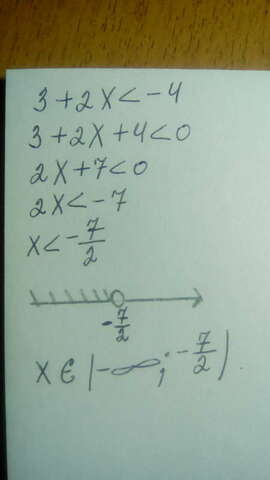 3 + 2x < -4
3 + 2x + 4 < 0
2x + 7 < 0
2x < -7
x < -7/2
-7/2
x ∈ (-∞; -7/2).